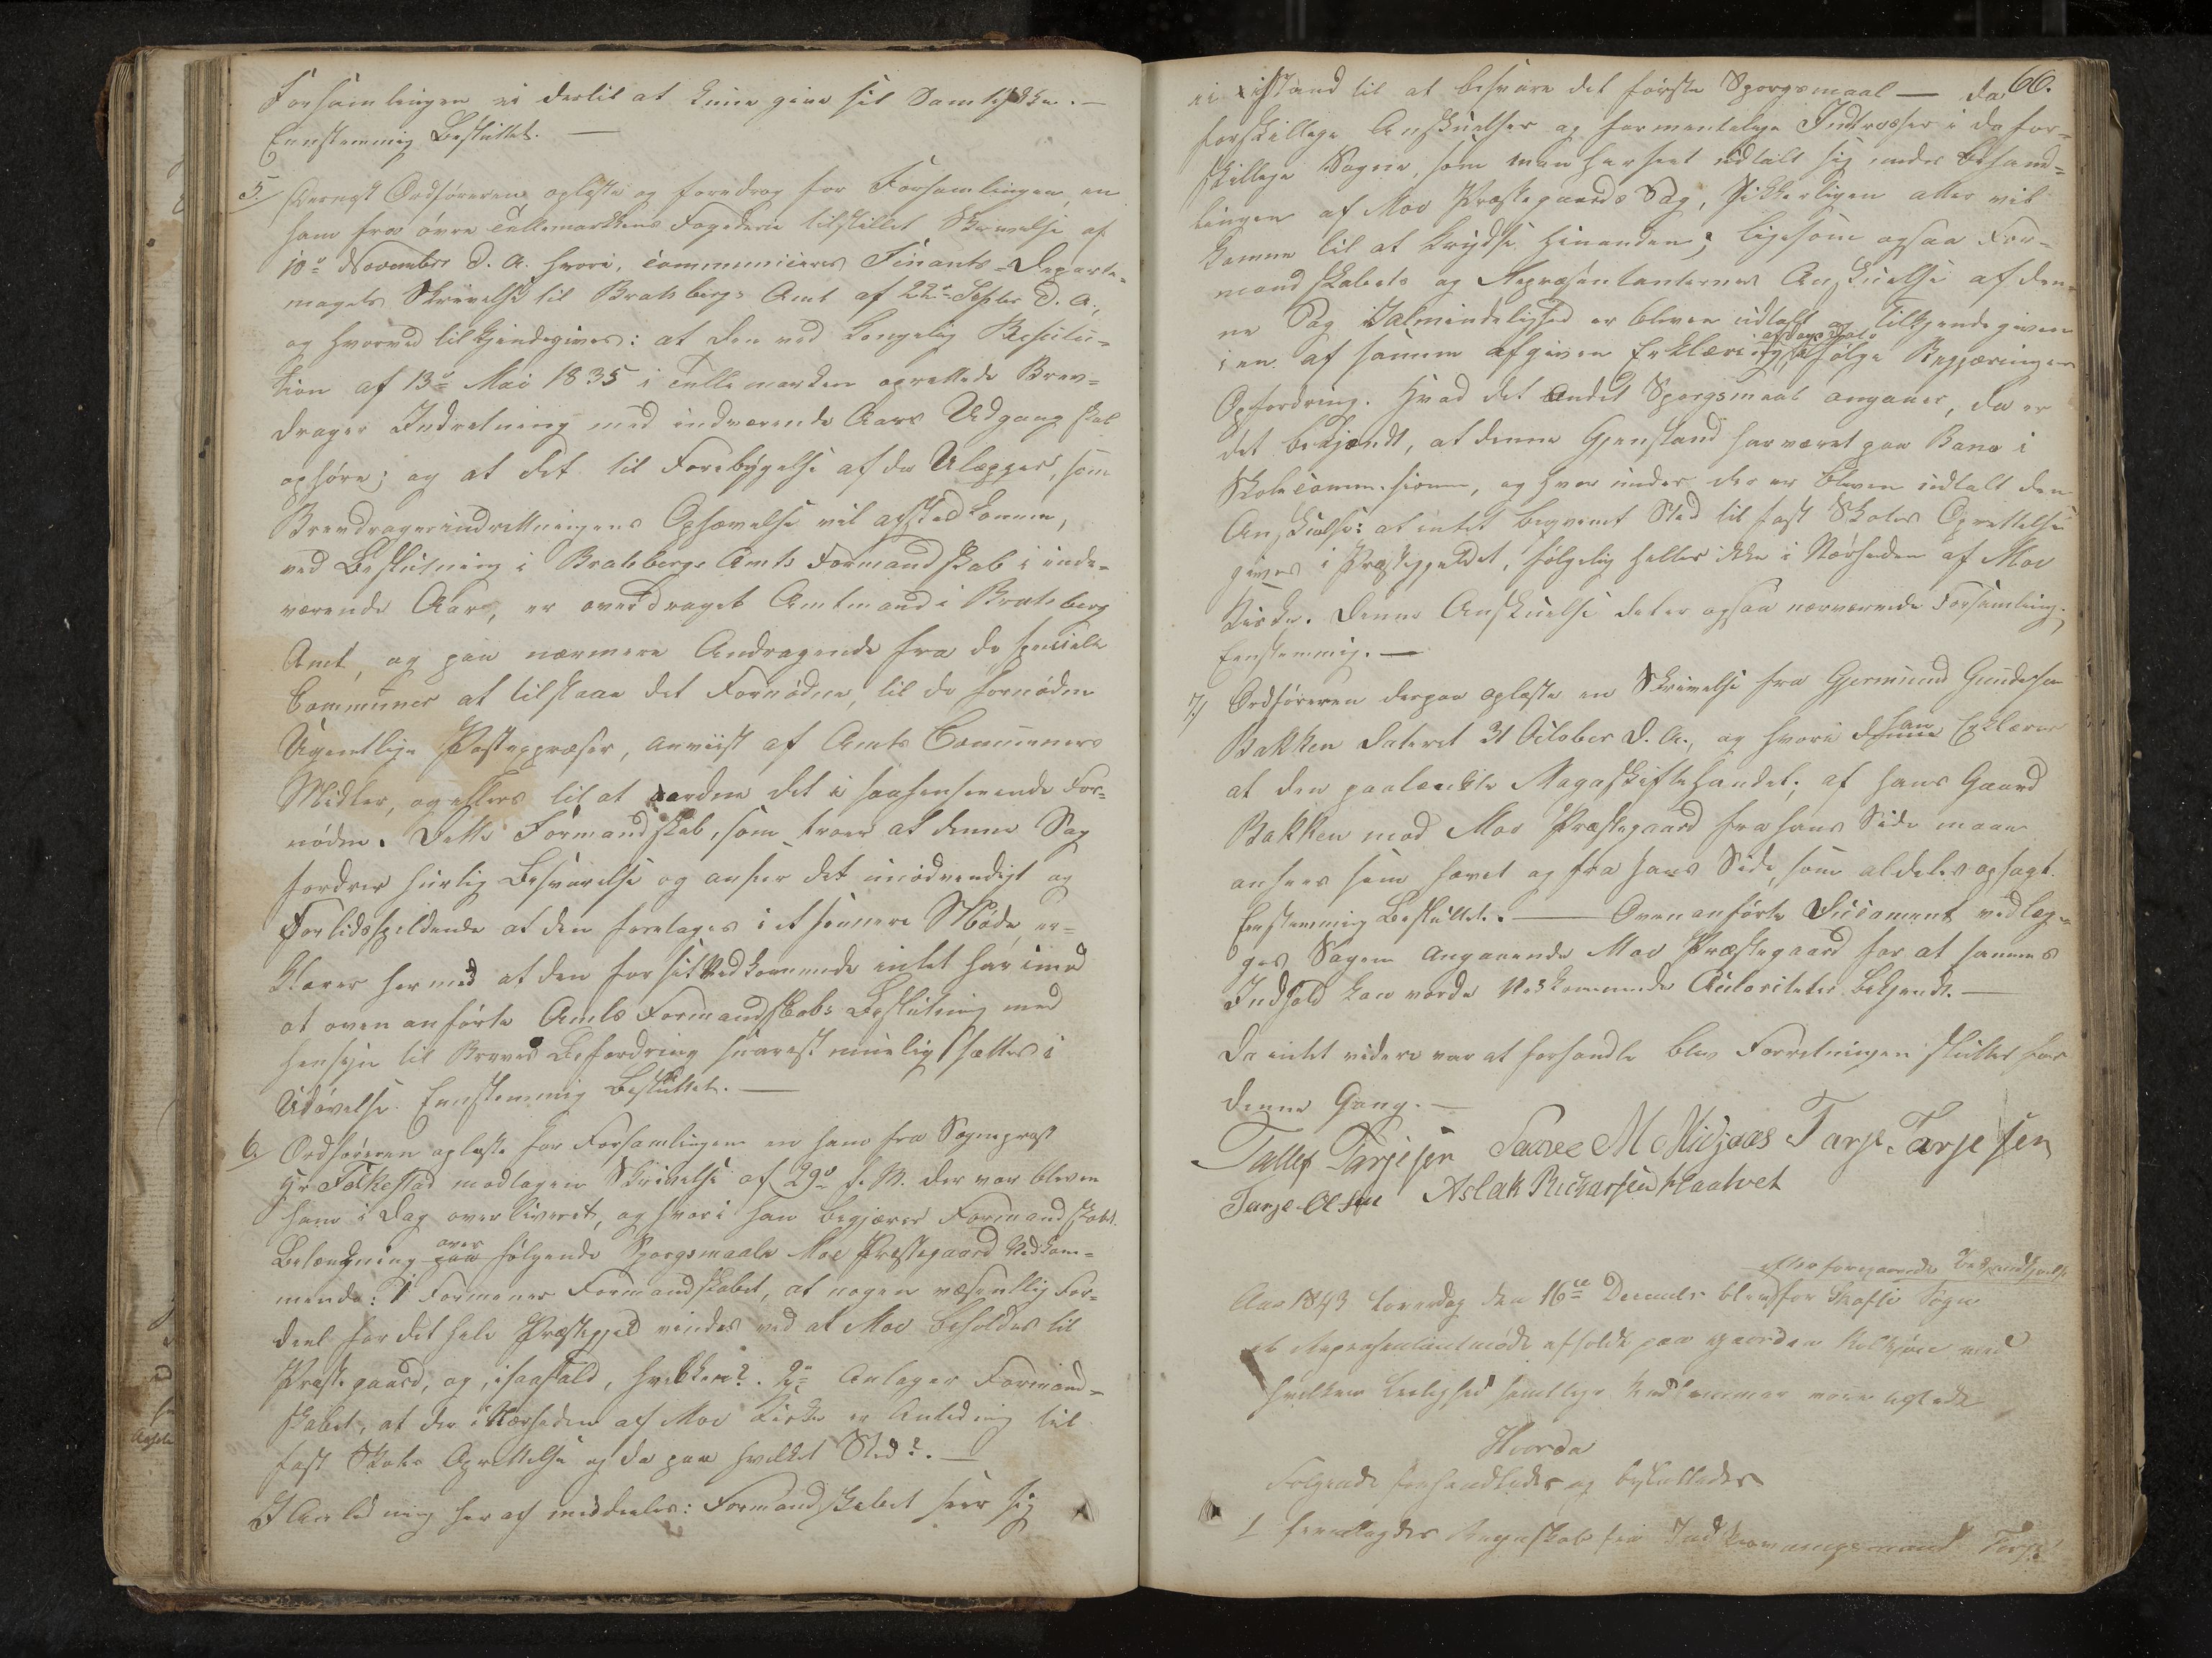 Forsamlingen ei dertil at kunne give sit Samtykke. —
Eenstemmig Besluttet. —
5./ Dernæst Ordføreren oplæste og foredrog for Forsamlingen en
ham fra øvre Tellemarkens Fogderie tilstillet Skrivelse af
10de November d. A. hvori, communiceres Finants-Departe-
mentets Skrivelse til Bratsbergs Amt af 22de Septbr d. A.,
og hvorved tilkjendegives: at den ved Kongelig Resolu-
tion af 13de Mai 1835 i Tellemarken oprettede Brev-
drager Indretning med indværende Aars Udgang skal
ophøre; og at det til Forebygelse af de Ulæmper, som
Brevdragerindretningens Ophævelse vil afstedkomme,
ved Beslutning i Bratsbergs Amts Formandskab i inde-
værende Aar, er overdraget Amtmand i Bratsberg
Amt, og paa nærmere Andragende fra de specielle
Communer at tilstaae det Fornødne, til de fornødne
Ugentlige Postexpresser, anviist af Amts Communens
Midler, og ellers til at ordne det i saahenseende For-
nødne. Dette Formandskab, som troer at denne Sag
fordrer hurtig Besvarelse og anseer det unødvendigt og
Fortidsspildende at den foretages i et senere Møde, er-
klærer hermed at den for sit Vedkommende intet har imod
at ovenanførte Amts Formandskabs Beslutning med
Hensyn til Breves Befordring snarest muelig sættes i
Udøvelse. Eenstemmig Besluttet. —
6./ Ordføreren oplæste for Forsamlingen en ham fra Sogneprest
Hr Folkestad modtagen Skrivelse af 29de f. M. der var bleven
ham i Dag overleveret, og hvori han begjærer Formandskabets
Betænkning over følgende Spørgsmaale Moe Præstegaard Vedkom-
mende: 1 Formener Formandskabet, at nogen væsentlig For-
deel for det hele Præstegjeld vindes ved at Moe beholdes til
Præstegaard, og, isaafald, hvilken? . 2de Antager Formand-
skabet, at der i Nærheden af Moe Kirke er Anledning til
fast Skoles Oprettelse og da paa hvilket Sted? . —
I Anledning heraf meddeeles: Formandskabet seer sig
66.
ei istand til at besvare det første Spørgsmaal — da
forskjellige Anskuelser og formentlige Interesser i de for-
skjellige Sogne, som man har seet udtalt sig under Behand-
lingen af Moe Præstegaards Sag, sikkerligen atter vil
komme til at krydse hinanden; ligesom ogsaa For-
mandskabets og Repræsentanternes Anskuelse af den-
ne Sag i Almindelighed er bleven udtalt og tilkjendegiven
i en af samme afgiven Erklæring ifølge Regjeringens
Opfordring. Hvad det andet Spørgsmaal angaaer, da er
det bekjendt, at denne Gjenstand har været paa Bane i
Skolecommissionen, og hvor under der er bleven udtalt den
Anskuelse: at intet beqvemt Sted til fast Skoles Oprettelse
gives i Præstegjeldet, følgelig heller ikke i Nærheden af Moe
Kirke. Denne Anskuelse deler ogsaa nærværende Forsamling.
Eenstemmig. —
7./ Ordføreren derpaa oplæste en Skrivelse fra Gjermund Gundersen
Bakken dateret 31 October d. A., og hvori han Erklærer
at den paatænkte Magaskiftehandel, af hans Gaard
Bakken mod Moe Præstegaard fra hans Side maae
ansees som hævet og fra hans Side, som aldeles opsagt.
Eenstemmig Besluttet. — Ovenanførte Document vedlæg-
ges Sagen angaaende Moe Præstegaard for at sammes
Indhold kan vorde Vedkommende Autoriteter bekjendt. —
Da intet videre var at forhandle blev Forretningen sluttet for
denne Gang. —
Tallef Tarjesen Sauve M Midjaas Tarje Tarjesen
Tarje Olsen Aslak Richarsen Haatvet
efter foregaaende Bekjendtgjørelse
Aar 1843 Løverdag den 16de Decembr blev for Skafse Sogn
et Repræsentantmøde afholdt paa Gaarden med
hvilken Leilighed samtlige Medlemmer vare
Hvorda
Følgende forhandledes og besluttedes
1 fremlagdes Regnskab fra